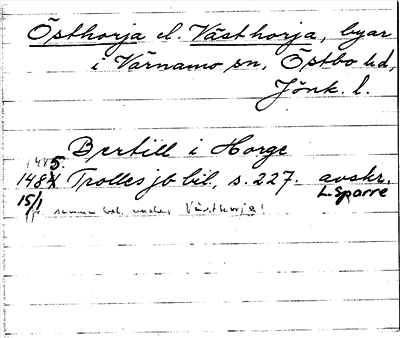 Östhorja el. Västhorja, byar
i Värnamo sn, Östbo hd,
Jönk. l.
Bertill i Horge
1485.
148 Trolles jb bil, s. 227. avskr.
15/1 L. Sparre
jfr samma bel. under Västhorja!